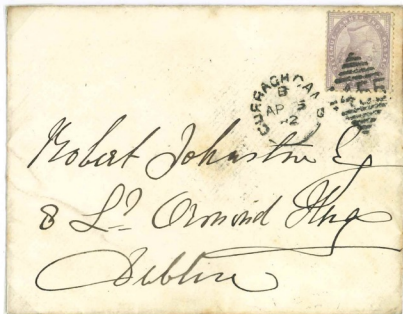 CURRAGH CAMP
B
AP 5
82
Robert Johnston Esq
8 Lr. Ormond Quay
Dublin